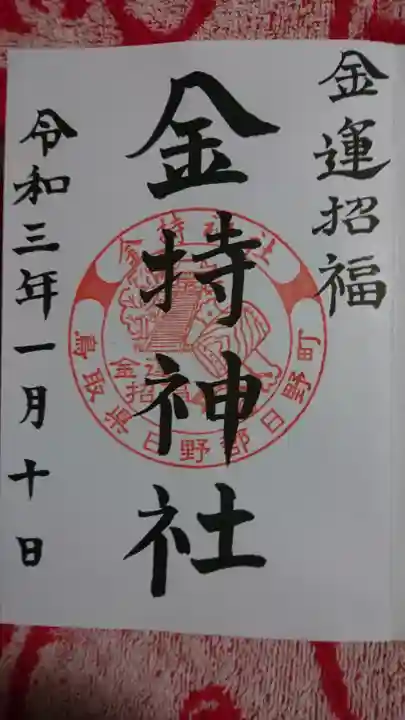 金運招福
金持神社
令和三年一月十日
金持神社
鳥取県日野郡日野町